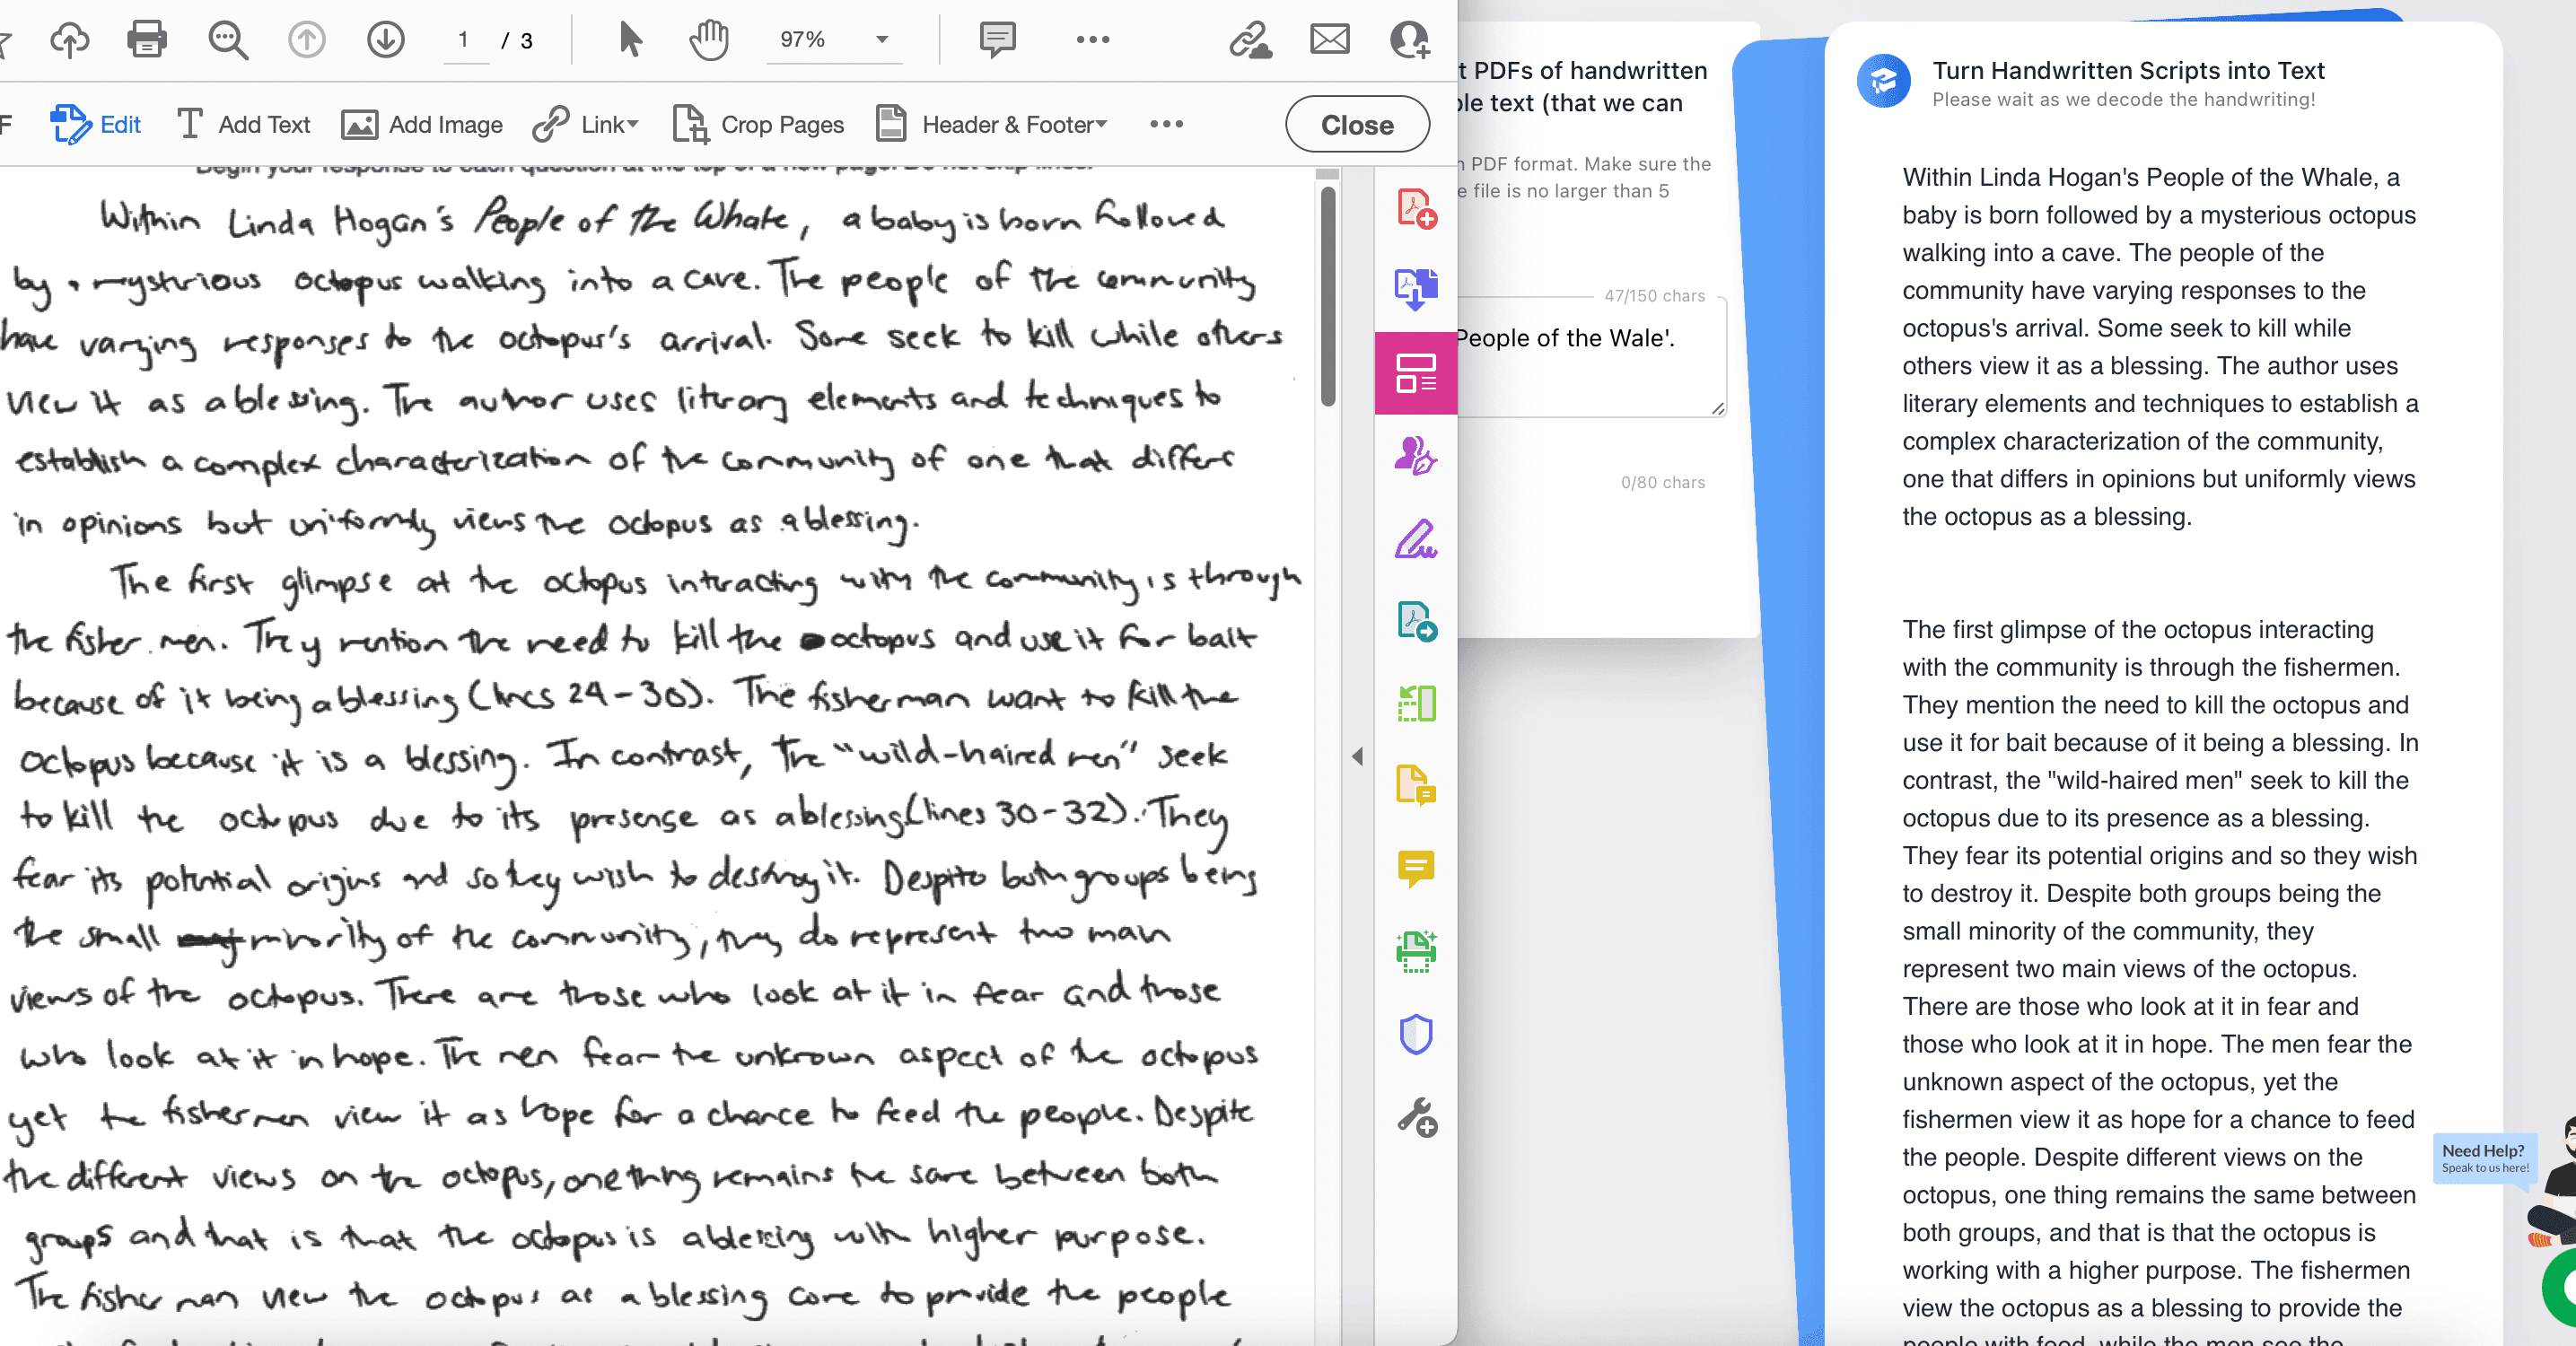 1 / 3
97%
Edit
Add Text
Add Image
Link
Crop Pages
Header & Footer
Close
Begin your response to each question at the top of a new page. Do not skip lines.
Within Linda Hogan's People of the Whale, a baby is born followed
by a mystrious octopus walking into a cave. The people of the community
have varying responses to the octopus's arrival. Some seek to kill while others
view it as a blessing. The author uses literary elements and techniques to
establish a complex characterization of the community of one that differs
in opinions but uniformly views the octopus as a blessing.
The first glimpse at the octopus interacting with the community is through
the fisher men. They mention the need to kill the octopus and use it for bait
because of it being a blessing (lines 24-30). The fisherman want to kill the
octopus because it is a blessing. In contrast, the "wild-haired men" seek
to kill the octopus due to its presense as a blessing (lines 30-32). They
fear its potential origins and so they wish to destroy it. Despite both groups being
the small minority of the community, they do represent two main
views of the octopus. There are those who look at it in fear and those
who look at it in hope. The men fear the unknown aspect of the octopus
yet the fishermen view it as hope for a chance to feed the people. Despite
the different views on the octopus, one thing remains the same between both
groups and that is that the octopus is a blessing with higher purpose.
The fisher man view the octopus as a blessing come to provide the people
t PDFs of handwritten
ble text (that we can
n PDF format. Make sure the
e file is no larger than 5
47/150 chars
People of the Wale'.
0/80 chars
Turn Handwritten Scripts into Text
Please wait as we decode the handwriting!
Within Linda Hogan's People of the Whale, a
baby is born followed by a mysterious octopus
walking into a cave. The people of the
community have varying responses to the
octopus's arrival. Some seek to kill while
others view it as a blessing. The author uses
literary elements and techniques to establish a
complex characterization of the community,
one that differs in opinions but uniformly views
the octopus as a blessing.
The first glimpse of the octopus interacting
with the community is through the fishermen.
They mention the need to kill the octopus and
use it for bait because of it being a blessing. In
contrast, the "wild-haired men" seek to kill the
octopus due to its presence as a blessing.
They fear its potential origins and so they wish
to destroy it. Despite both groups being the
small minority of the community, they
represent two main views of the octopus.
There are those who look at it in fear and
those who look at it in hope. The men fear the
unknown aspect of the octopus, yet the
fishermen view it as hope for a chance to feed
the people. Despite different views on the
octopus, one thing remains the same between
both groups, and that is that the octopus is
working with a higher purpose. The fishermen
view the octopus as a blessing to provide the
people with food, while the men see the
Need Help?
Speak to us here!